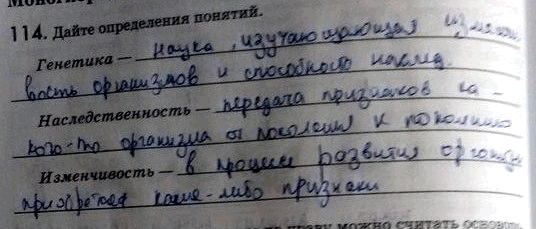 114. Дайте определения понятий.
Генетика — наука, изучающая измен
вость организмов и способность наслед.
Наследственность — передача признаков ка-
кого-то организма от поколения к поколению
Изменчивость — в процессе развития организм
приобретает какие-либо признаки
можно считать основой